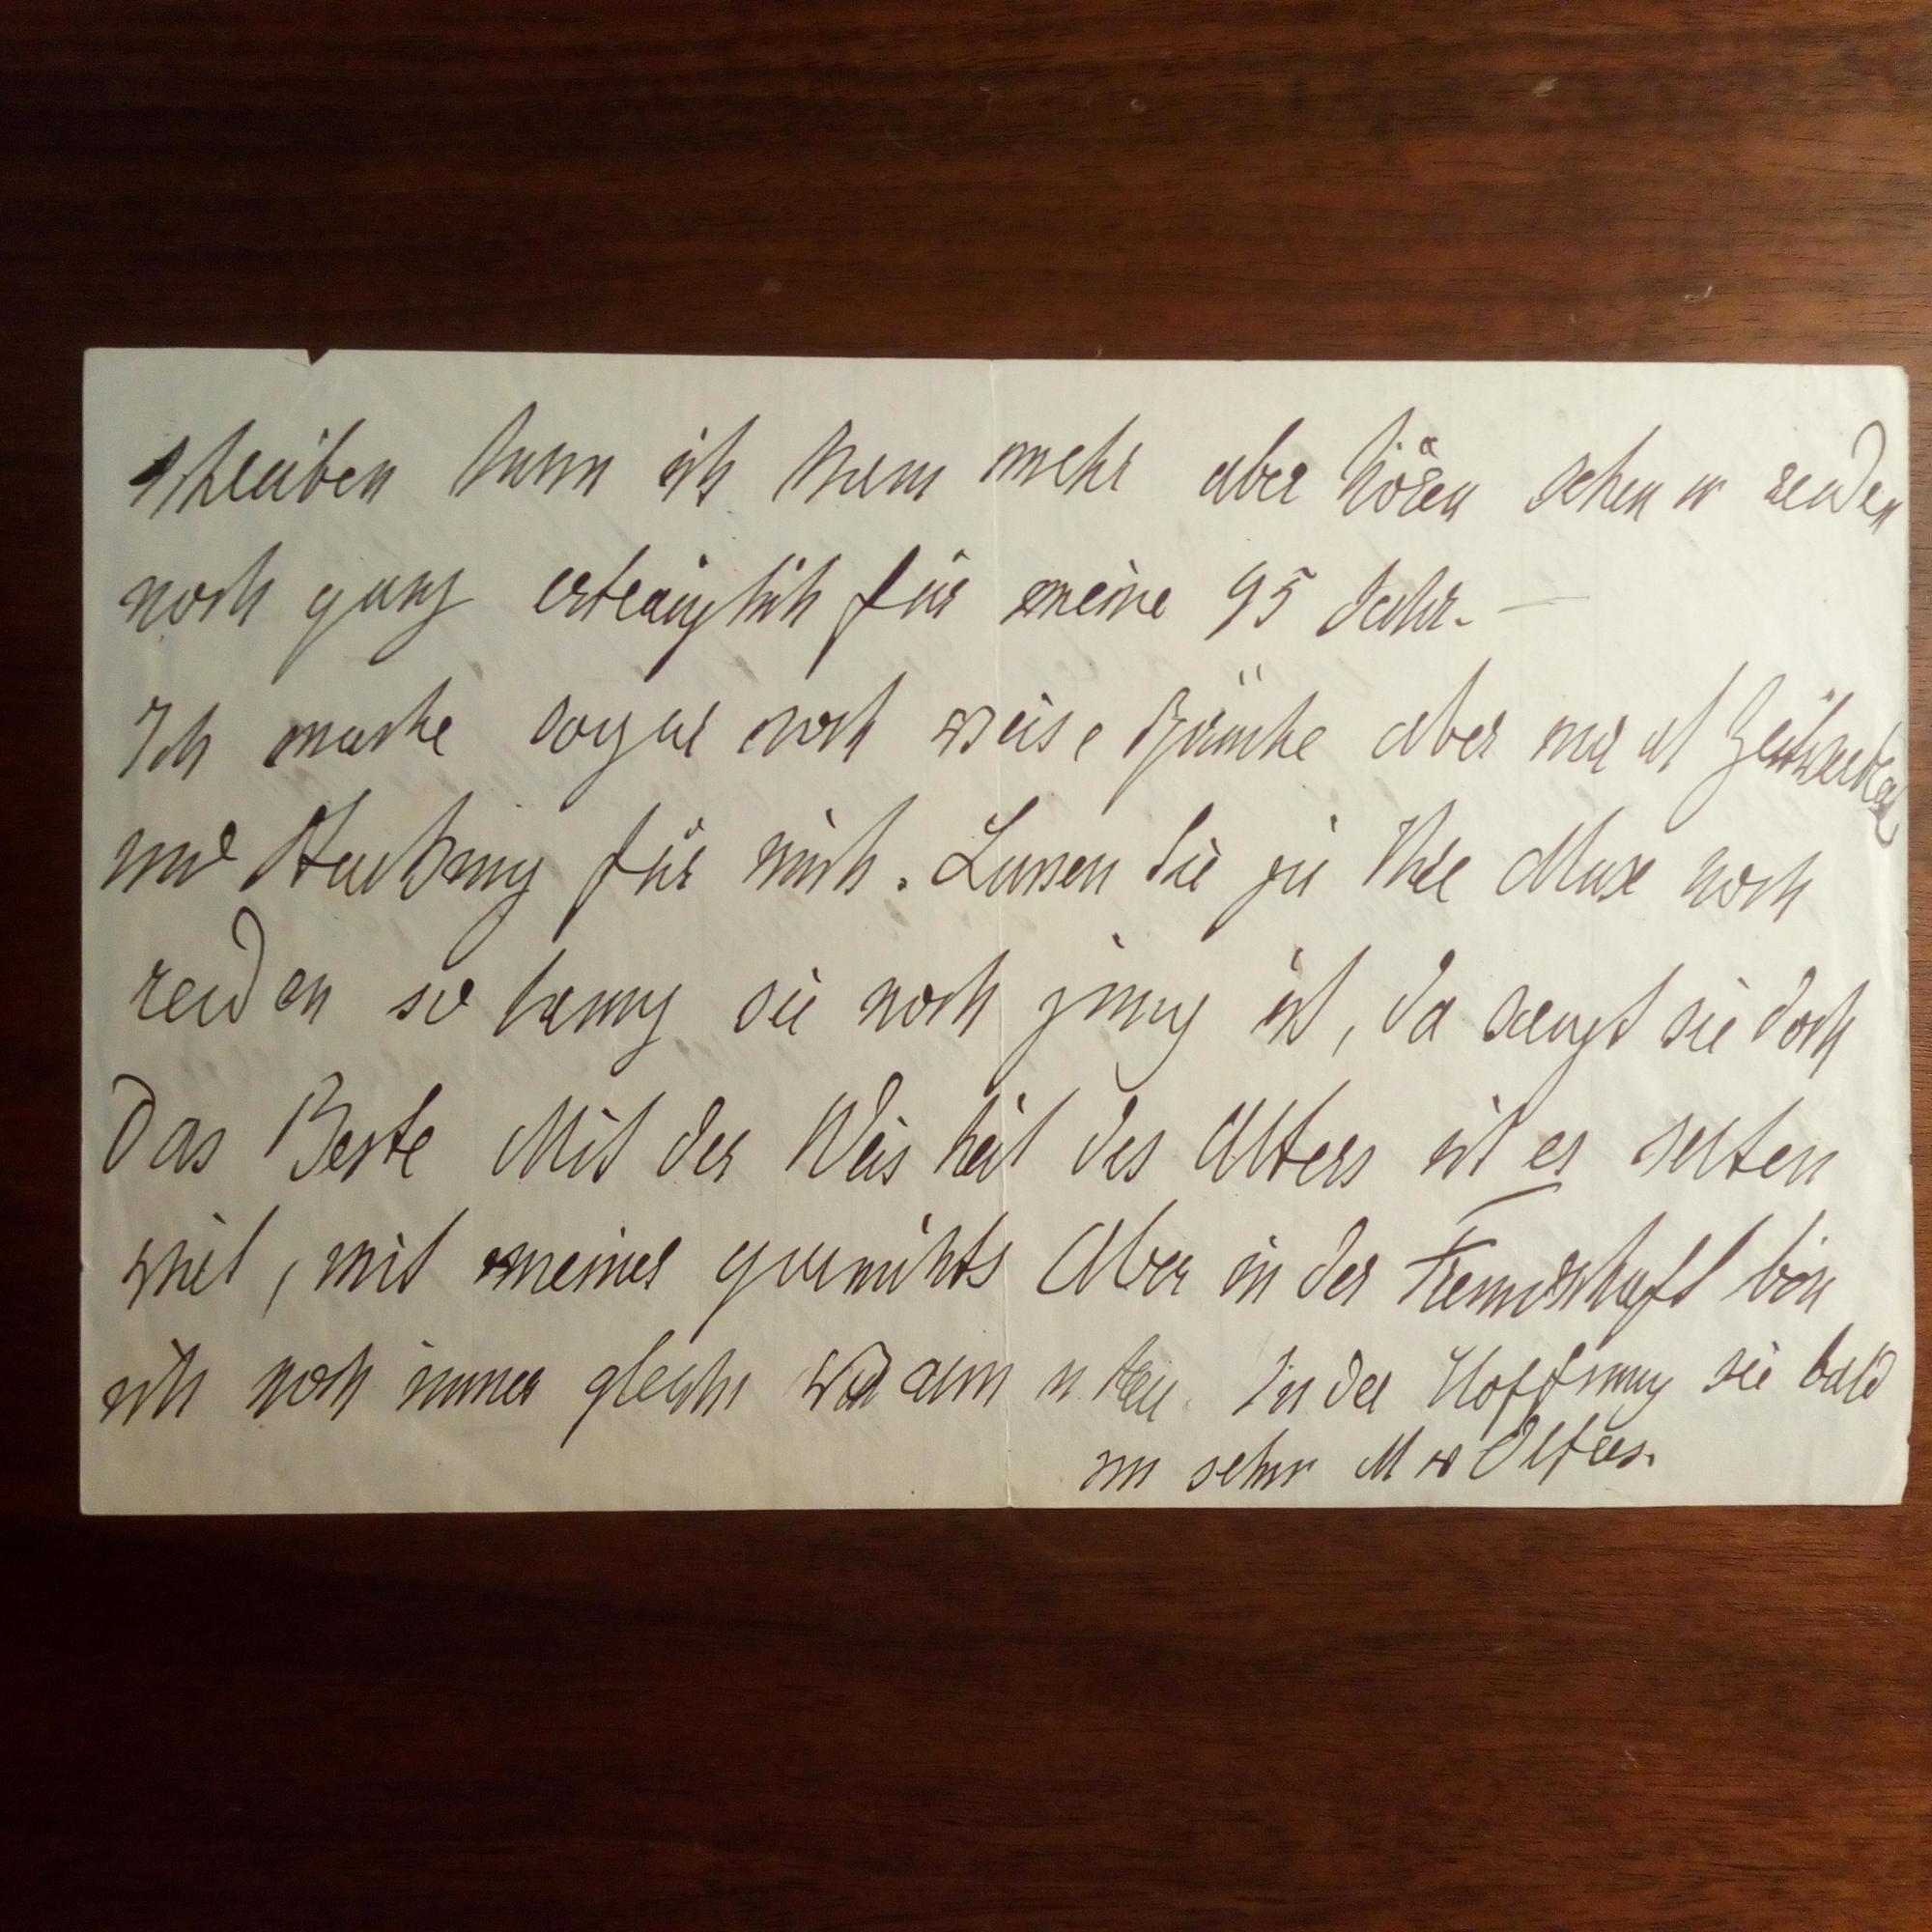 schreiben kann ich kaum mehr aber hören sehen u reden
noch ganz erträglich für meine 95 Jahr. —
Ich mache sogar noch weise Sprüche aber nur als Zeitvertreib
und Stärkung für mich. Lassen Sie ja Ihre Muse noch
reden so lang sie noch jung ist, da saugt sie doch
Das Beste Mit der Weisheit des Alters ist es selten
viel, mit meiner gar nichts Aber in der Freundschaft bin
ich noch immer gleich warm u treu. In der Hoffnung sie bald
zu sehn M v Olfers.